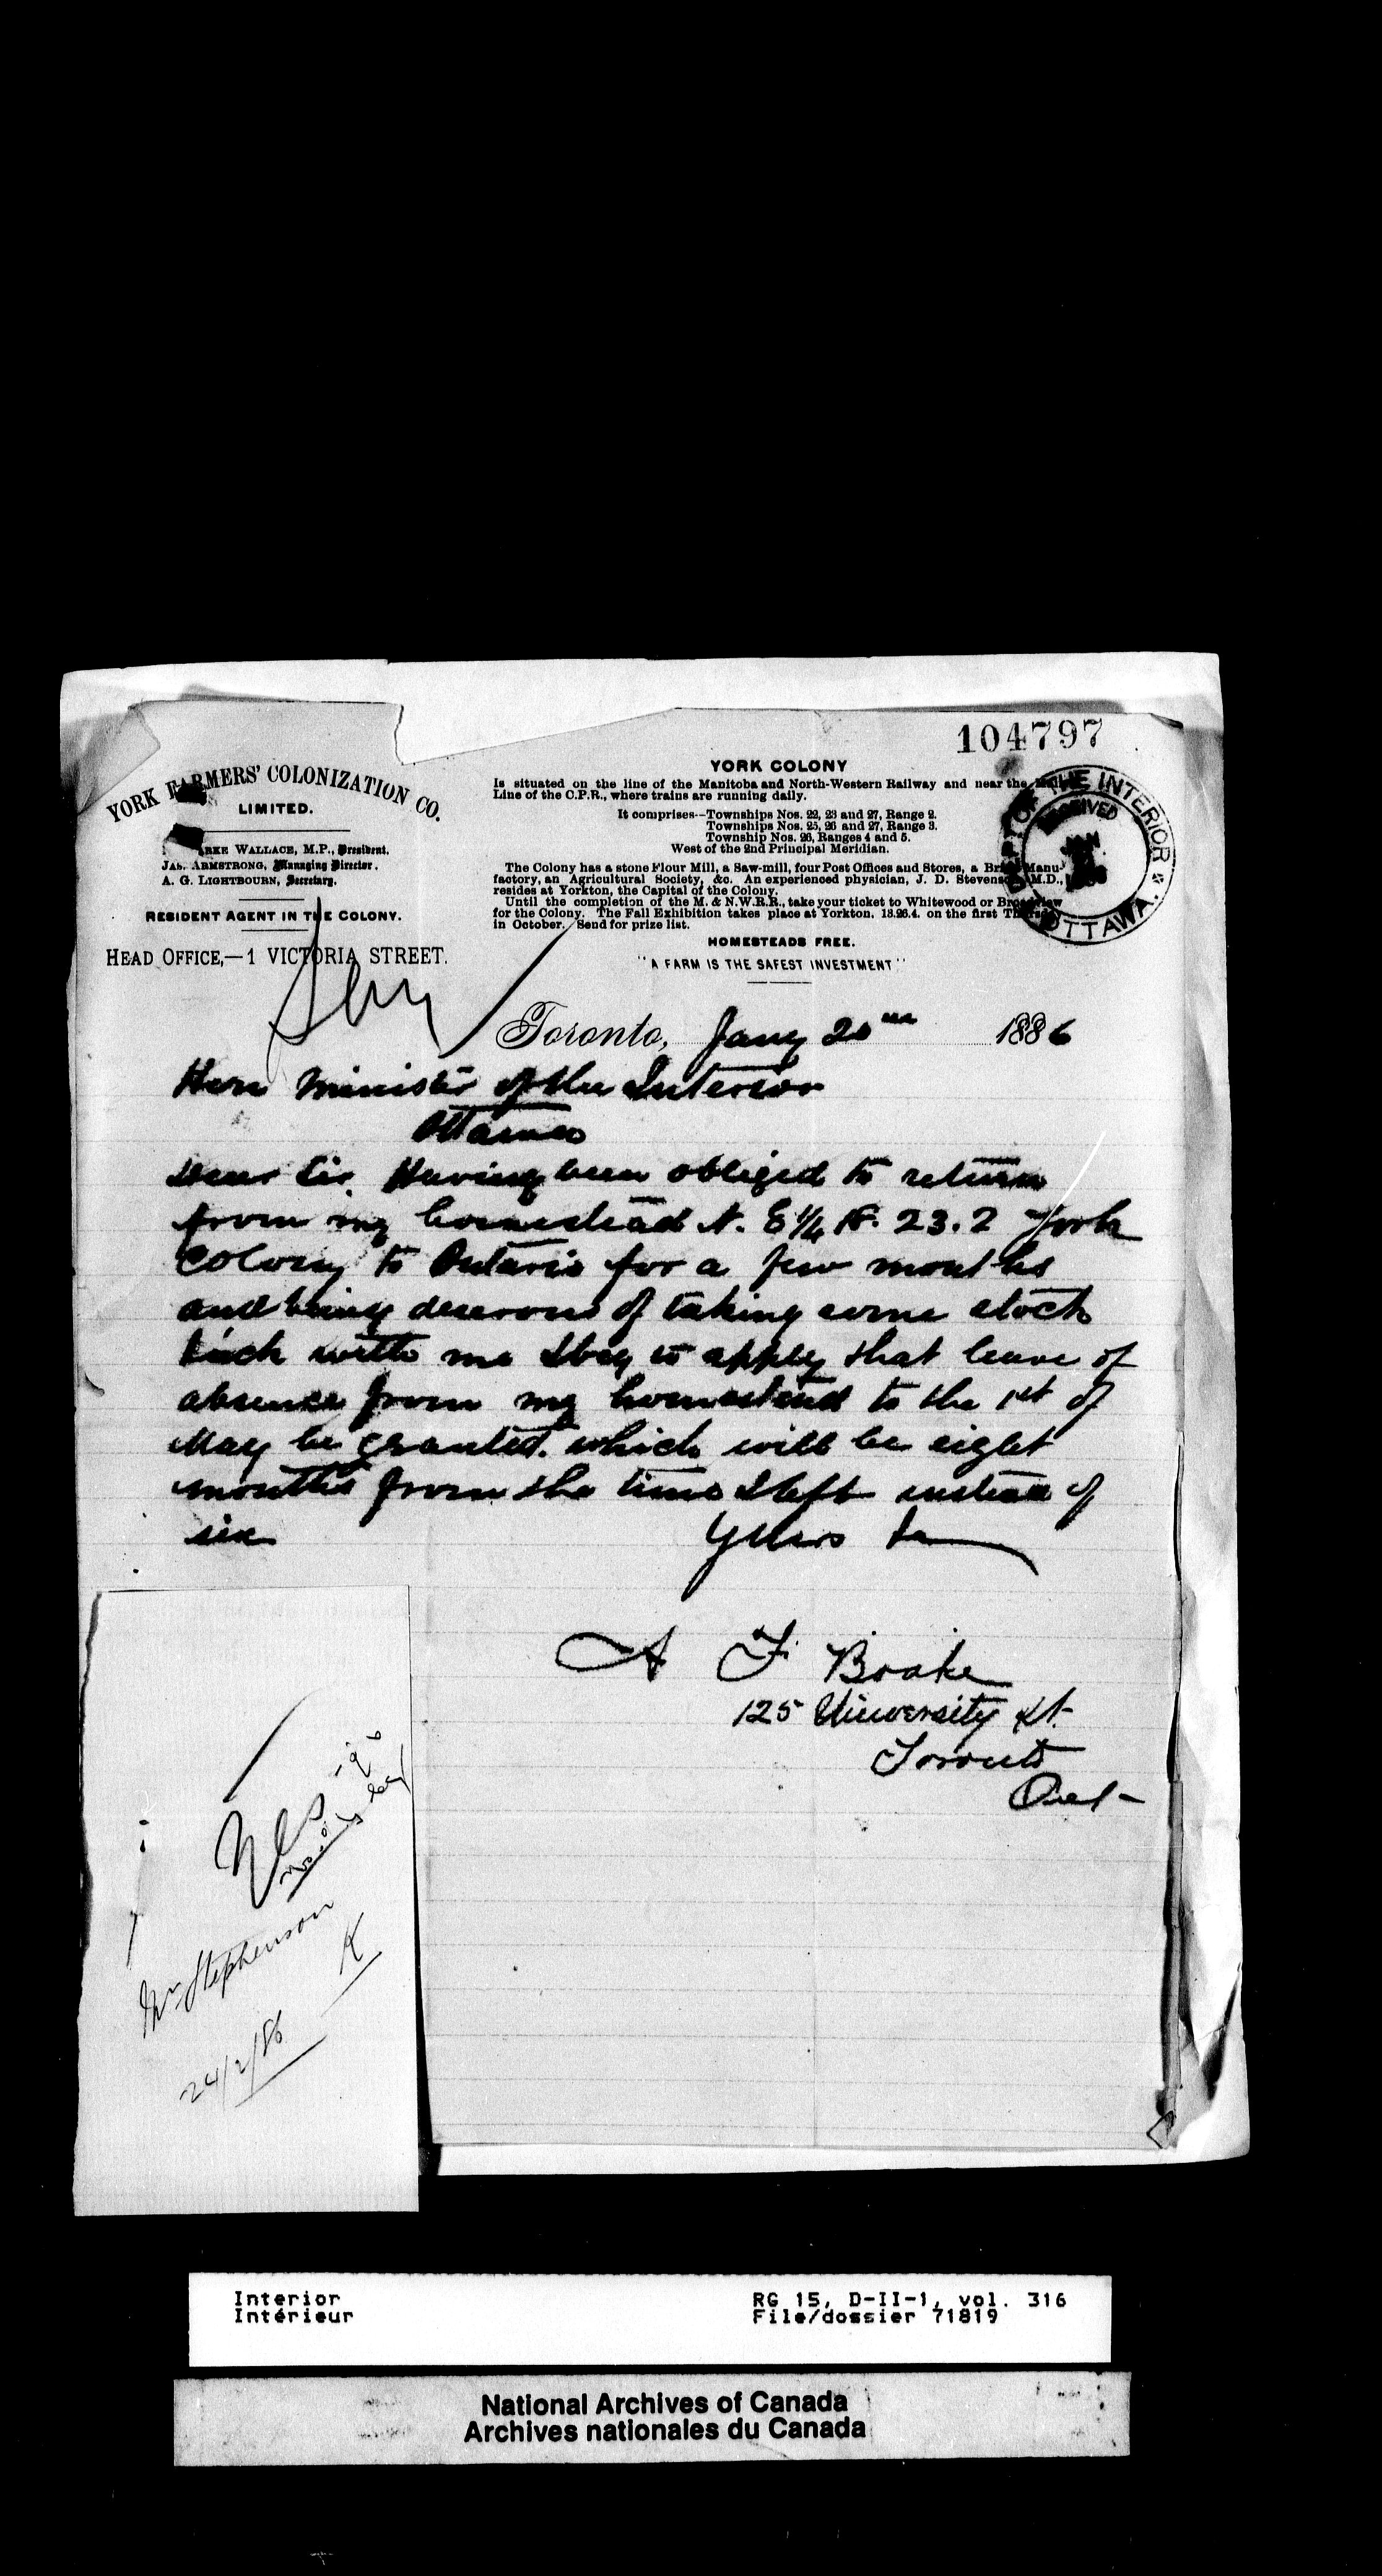 104797
YORK FARMERS' COLONIZATION CO.
LIMITED.
WALLACE, M.P., President.
JAS. ARMSTRONG, Managing Director.
A. G. LIGHTBOURN, Secretary.
RESIDENT AGENT IN THE COLONY.
HEAD OFFICE,—1 VICTORIA STREET.
YORK COLONY
Is situated on the line of the Manitoba and North-Western Railway and near the
Line of the C.P.R., where trains are running daily.
It comprises—Townships Nos. 22, 23 and 27, Range 2.
Townships Nos. 25, 26 and 27, Range 3.
Township Nos. 26, Ranges 4 and 5.
West of the 2nd Principal Meridian.
The Colony has a stone Flour Mill, a Saw-mill, four Post Offices and Stores, a Brick Manu-
factory, an Agricultural Society, &c. An experienced physician, J. D. Stevenson, M.D.,
resides at Yorkton, the Capital of the Colony.
Until the completion of the M. & N.W.R.R., take your ticket to Whitewood or Broadview
for the Colony. The Fall Exhibition takes place at Yorkton. 18.26.4. on the first Thursday
in October. Send for prize list.
HOMESTEADS FREE.
"A FARM IS THE SAFEST INVESTMENT"
DEPT OF THE INTERIOR
RECEIVED
JAN
OTTAWA.
Toronto, Jany 20th 1886
Hon Minister of the Interior
Ottawa
Dear Sir. Having been obliged to return
from my homestead N. E 1/4 18. 23. 2 York
Colony to Ontario for a few months
and being deserous of taking some stock
back with me I beg to apply that leave of
absence from my homestead to the 1st of
May be granted. which will be eight
months from the time I left instead of
six
Yours
A F Boake
125 University St.
Toronto
Ont-
Yes
Mr Stephenson
K
24/2/86
Interior
Intérieur
RG 15, D-II-1, vol. 316
File/dossier 71819
National Archives of Canada
Archives nationales du Canada